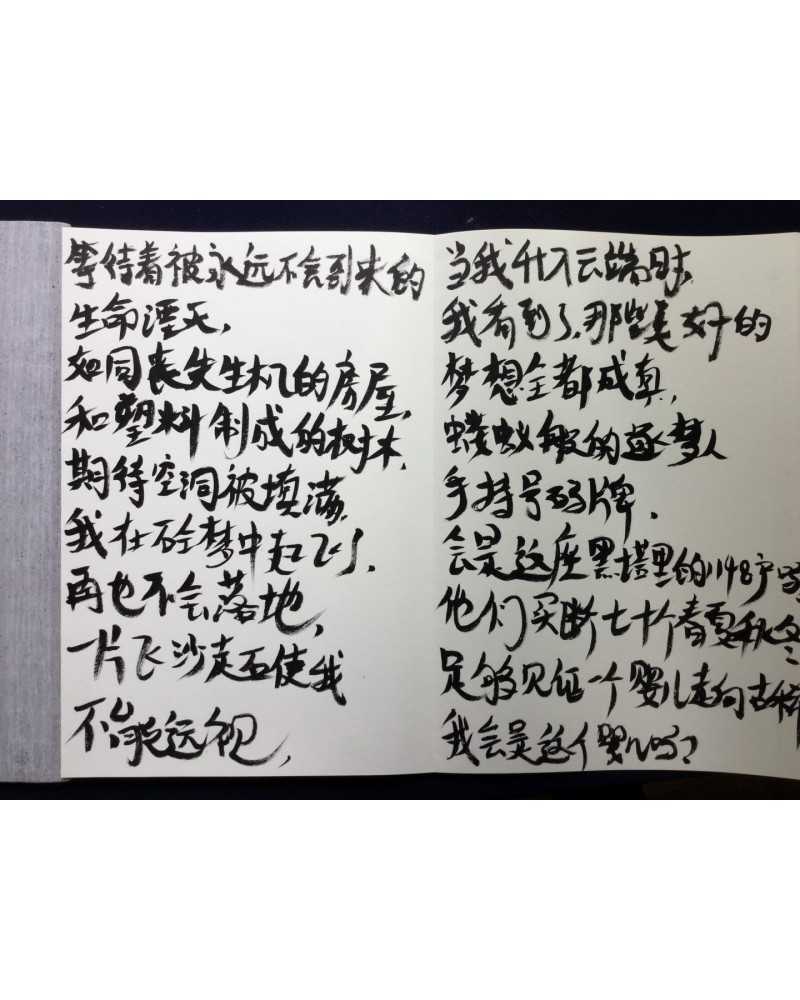 等待着被永远不会到来的
生命湮灭,
如同丧失生机的房屋,
和塑料制成的树木,
期待空洞被填满,
我在梦中起飞,
再也不会落地,
一片飞沙走石使我
不能远视,
当我升入云端时,
我看到了,那些美好的
梦想全都成真,
蝼蚁般的逐梦人
手持号码牌,
会是这座黑塔里的1148户
他们买断七十个春夏秋冬
足够见证一个婴儿走向古稀
我会是这个婴儿吗?